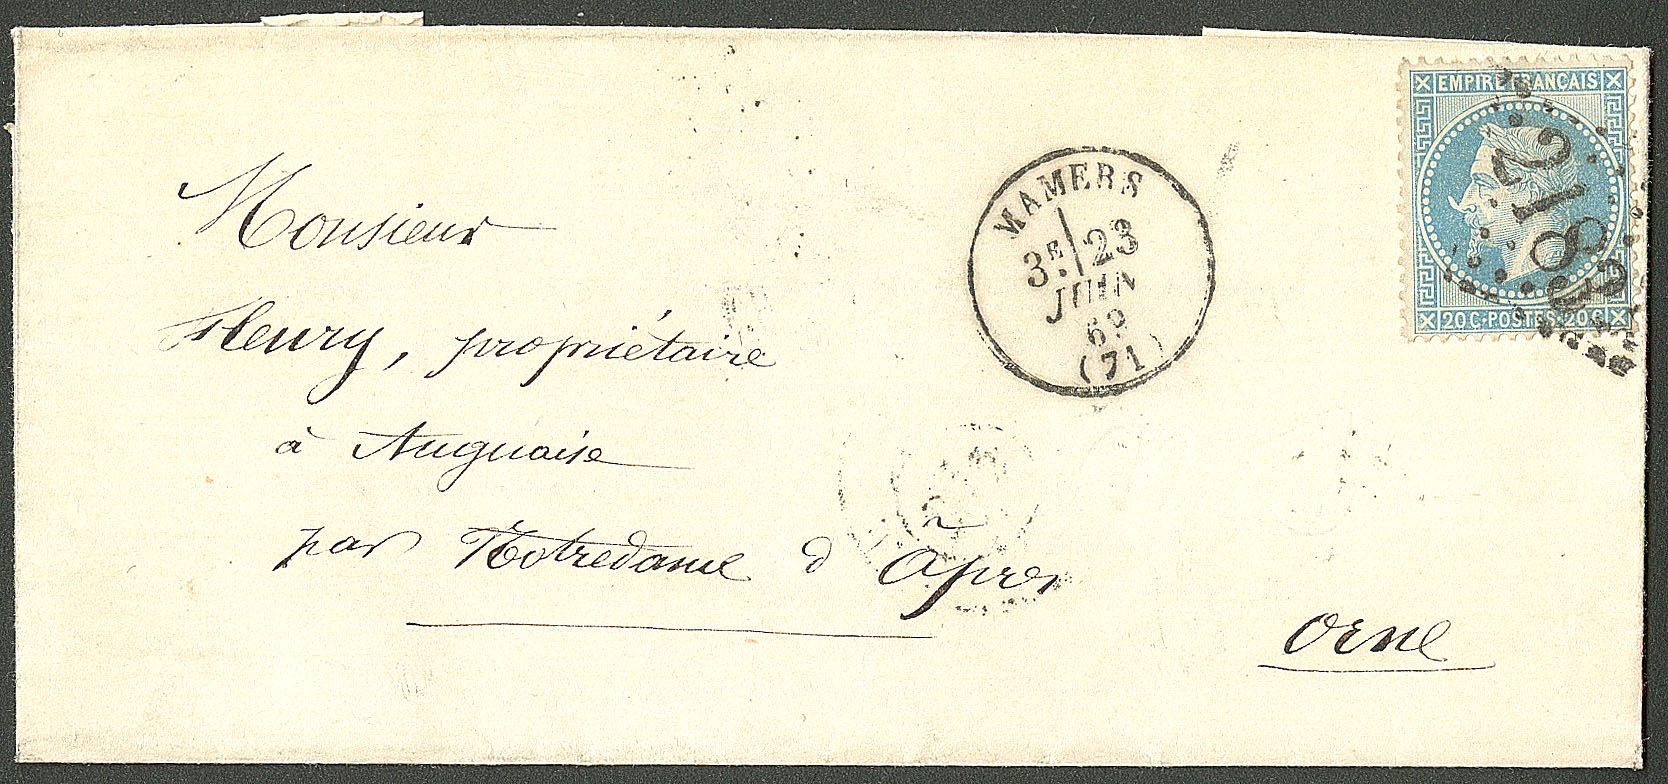 EMPIRE FRANÇAIS
MAMERS
3E 23
JUIN
69
(71)
2188
20 C. POSTES 20 C
Monsieur
Fleury, propriétaire
à Auguaise
par Notredame d'Apres
Orne